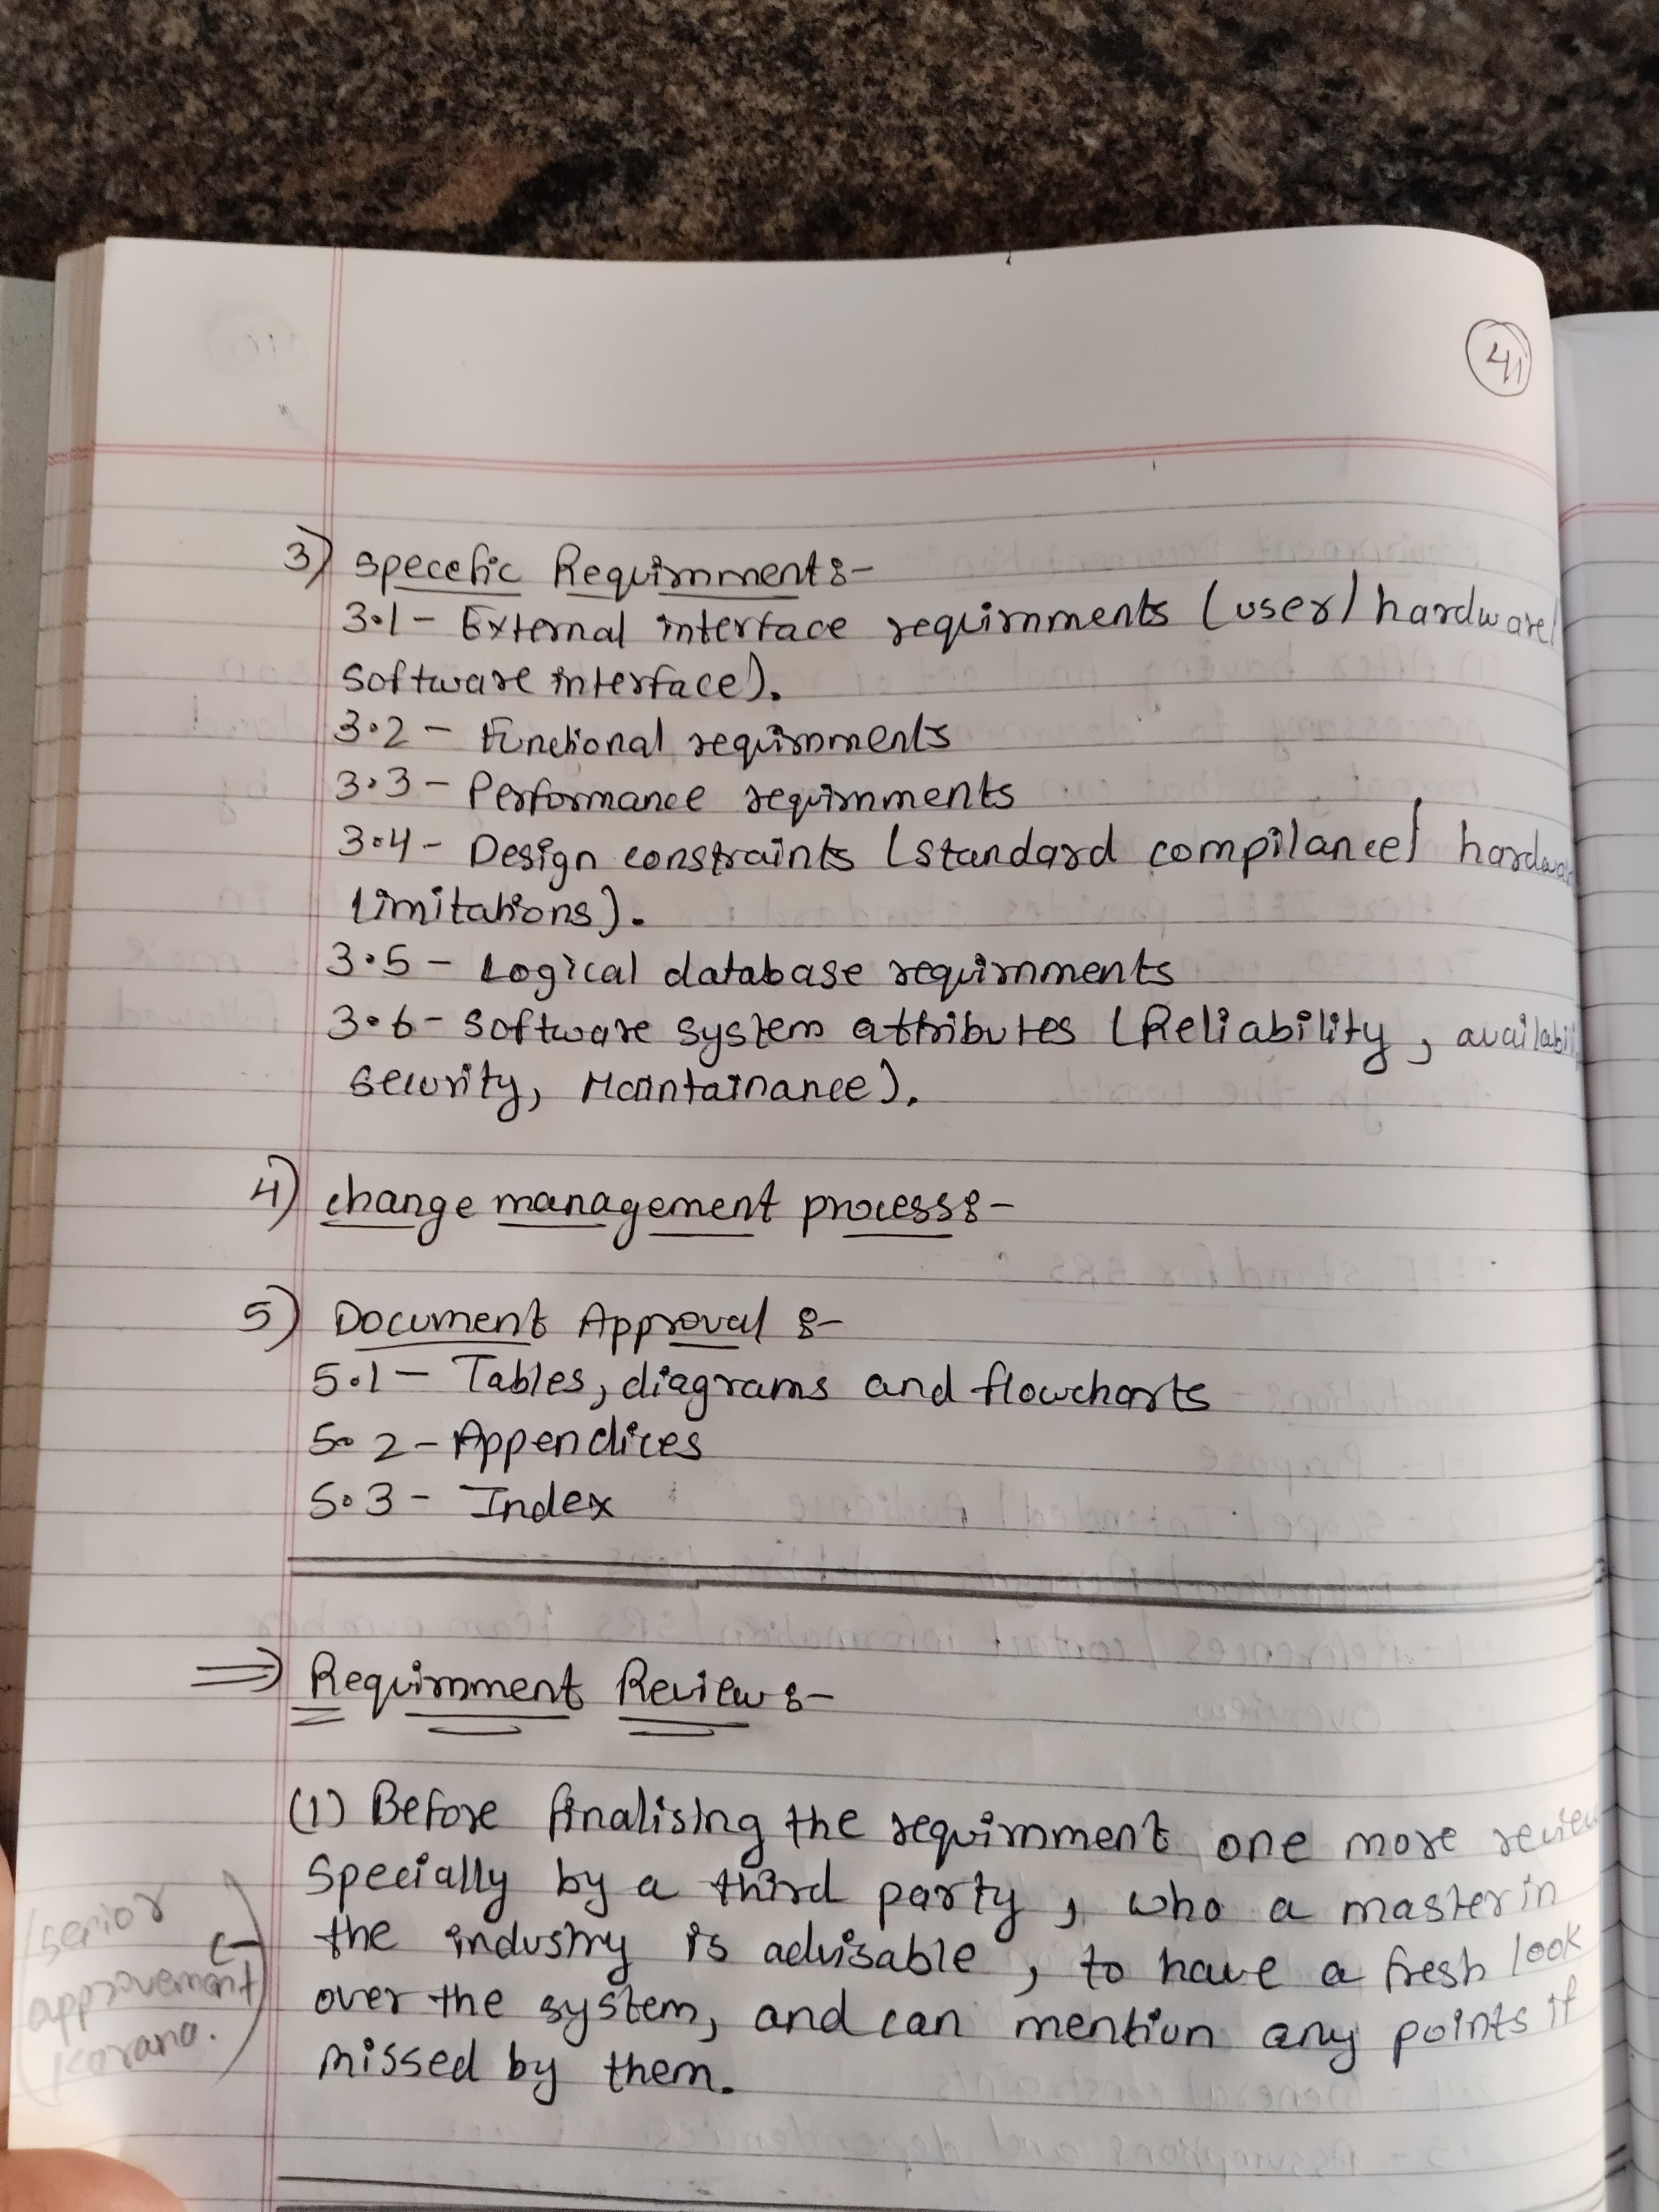 41
3) specefic Requirnments:-
3.1 - External interface requirnments (user/hardware/
software interface).
3.2 - Functional requirnments
3.3 - Performance requirnments
3.4 - Design constraints (standard compilance/
limitations).
3.5 - Logical database requirnments
3.6 - software system attributes (Reliability,
security, Maintainance).
4) change management process:-
5) Document Approval :-
5.1 - Tables, diagrams and flowcharts
5.2 - Appendices
5.3 - Index
⇒ Requirnment Review:-
(1) Before finalising the requirnment one more
specially by a third party, who a master in
the industry is advisable, to have a fresh look
over the system, and can mention any points if
missed by them.
(senior
approvement
karana.)